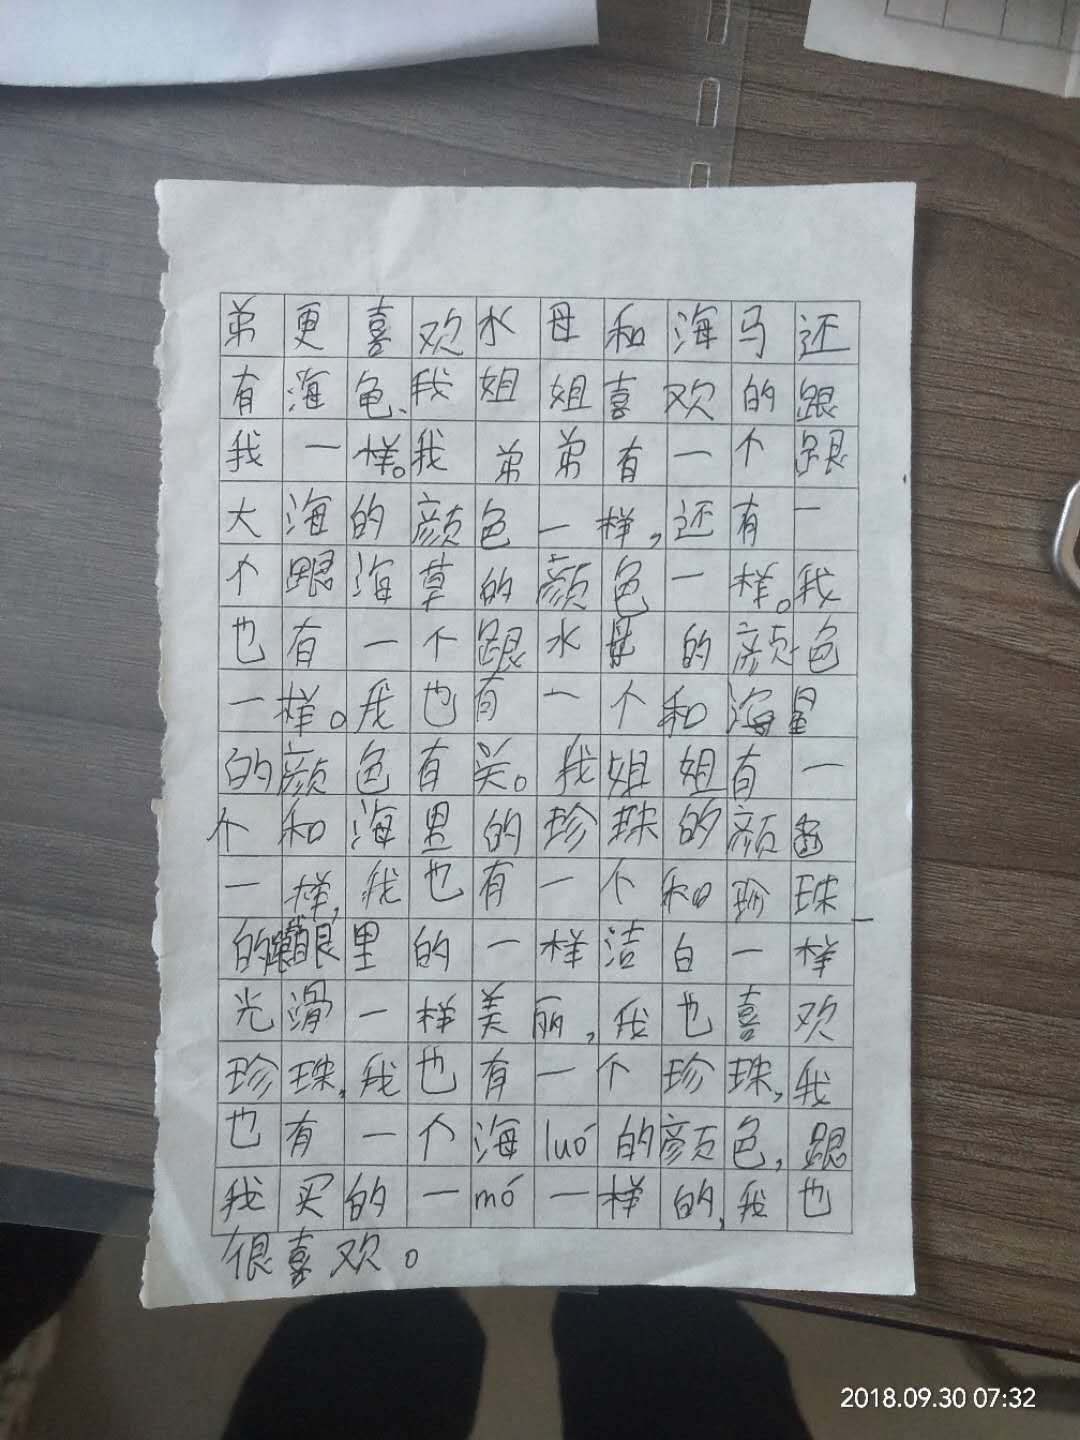 弟更喜欢水母和海马还
有海龟、我姐姐喜欢的跟
我一样。我弟弟有一个跟
大海的颜色一样,还有一
个跟海草的颜色一样。我
也有一个跟水母的颜色
一样。我也有一个和海星
的颜色有关。我姐姐有一
个和海里的珍珠的颜色
一样,我也有一个和珍珠
的跟里的一样洁白一样
光滑一样美丽,我也喜欢
珍珠,我也有一个珍珠,我
也有一个海luó的颜色,跟
我买的一mó一样的,我也
很喜欢。
2018.09.30 07:32